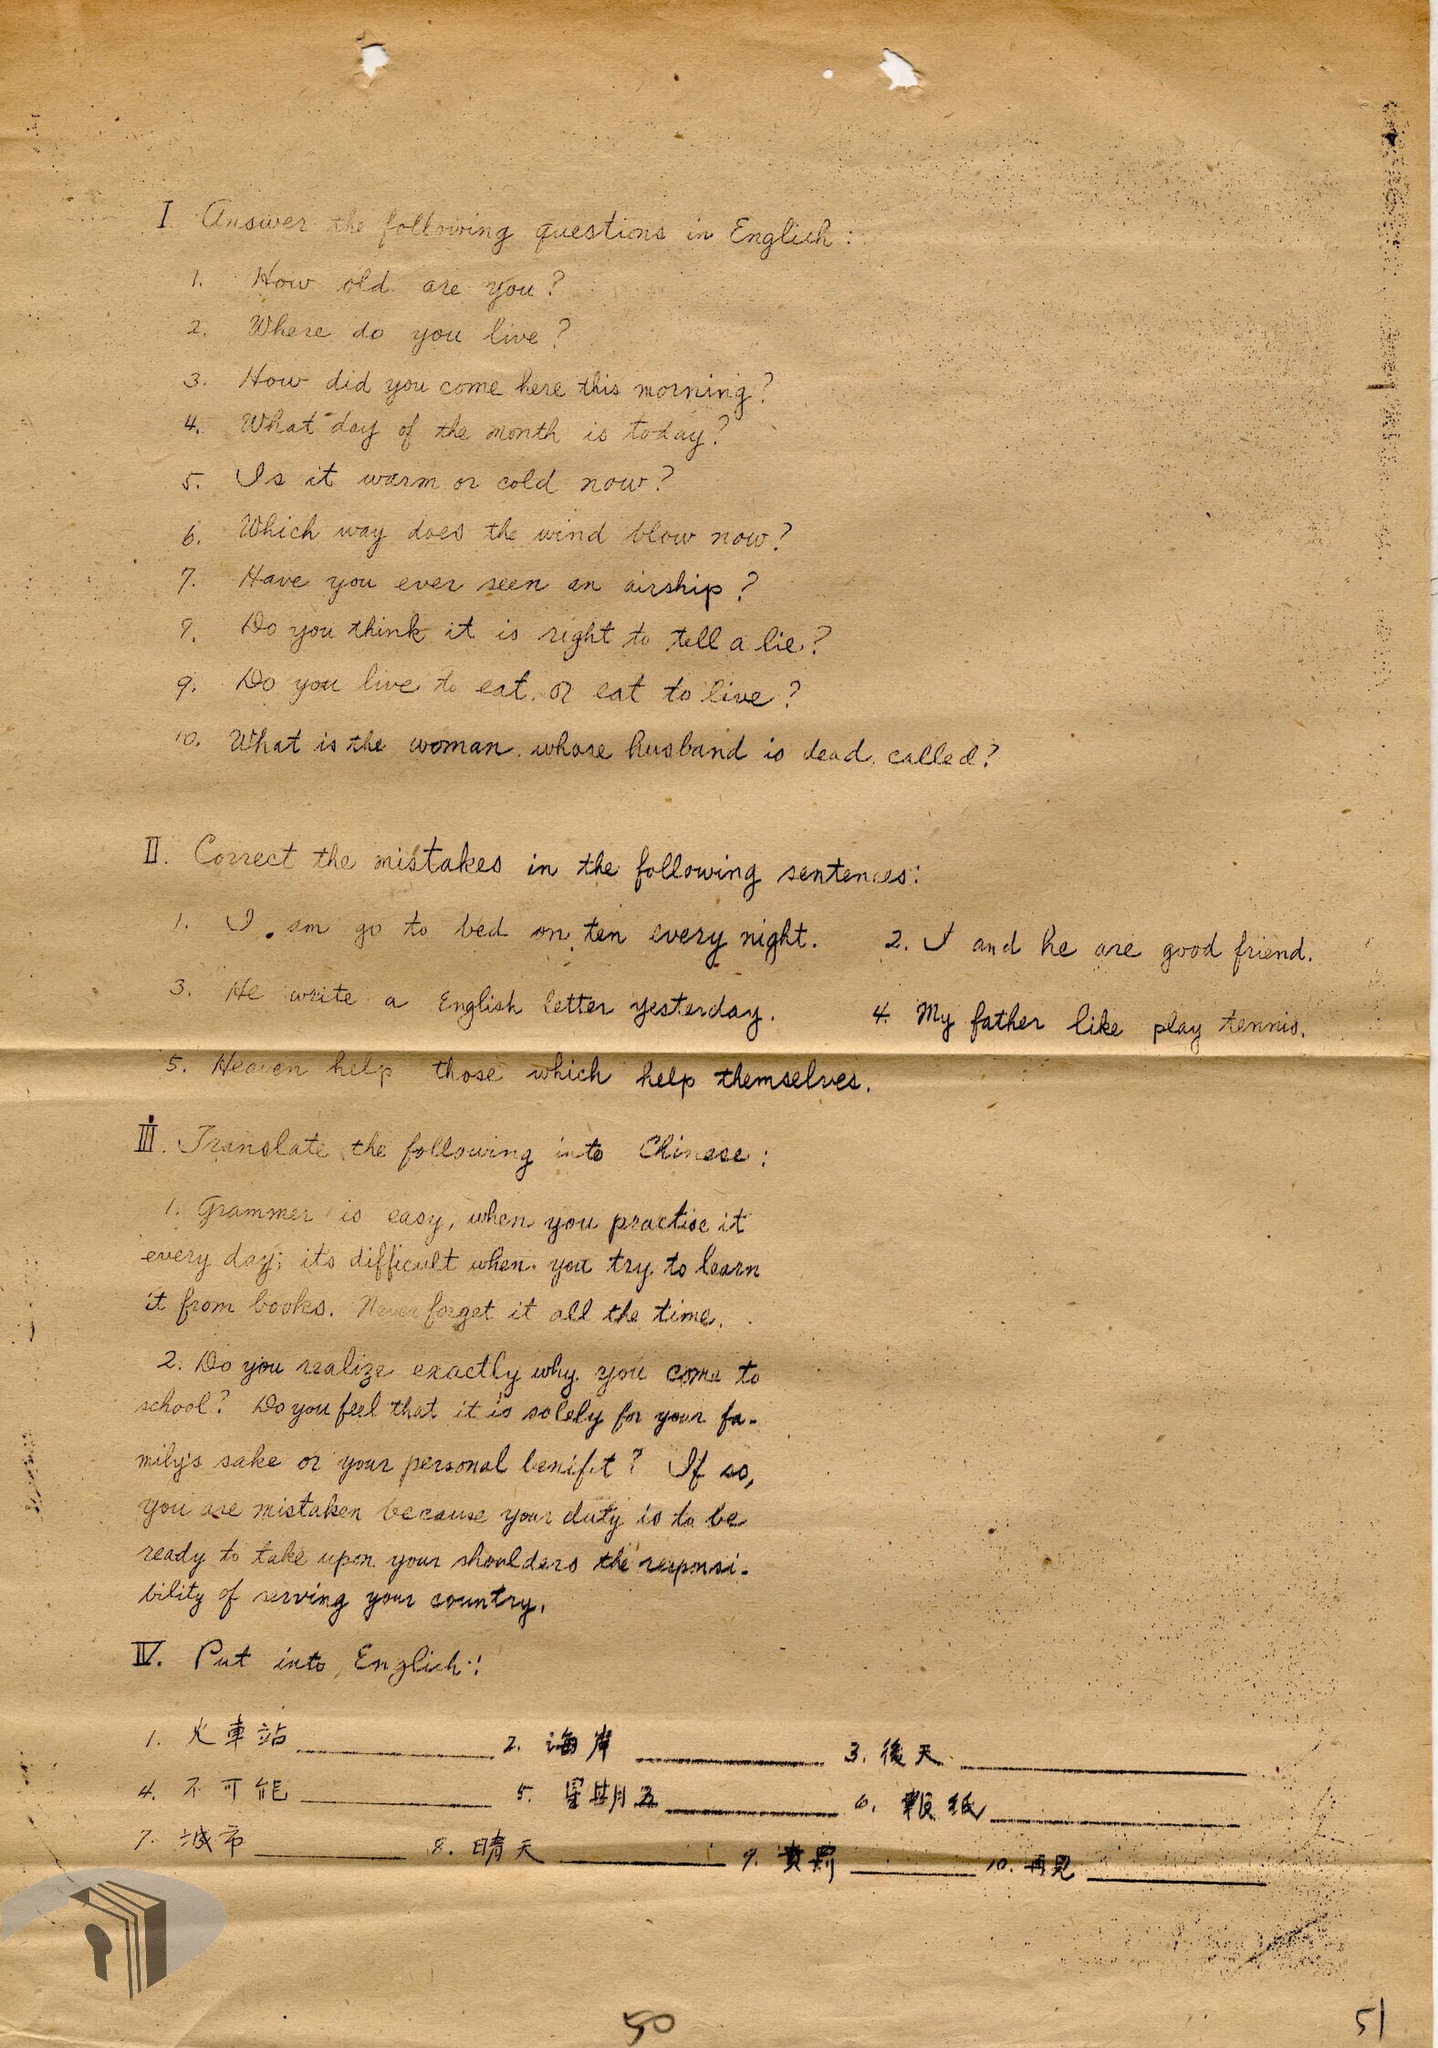 I. Answer the following questions in English:
1. How old are you?
2. Where do you live?
3. How did you come here this morning?
4. What day of the month is today?
5. Is it warm or cold now?
6. Which way does the wind blow now?
7. Have you ever seen an airship?
8. Do you think it is right to tell a lie?
9. Do you live to eat, or eat to live?
10. What is the woman, whose husband is dead, called?
II. Correct the mistakes in the following sentences:
1. I am go to bed on ten every night. 2. I and he are good friend.
3. He write a English letter yesterday. 4. My father like play tennis.
5. Heaven help those which help themselves.
III. Translate the following into Chinese:
1. Grammer is easy, when you practise it
every day; its difficult when you try to learn
it from books. Never forget it all the time.
2. Do you realize exactly why you come to
school? Do you feel that it is solely for your fa-
mily's sake or your personal benifit? If so,
you are mistaken because your duty is to be
ready to take upon your shoulders the responsi-
bility of serving your country.
IV. Put into English:
1. 火車站 2. 海岸 3. 後天
4. 不可能 5. 星期五 6. 報紙
7. 城市 8. 晴天 9. 10. 再見
50
51